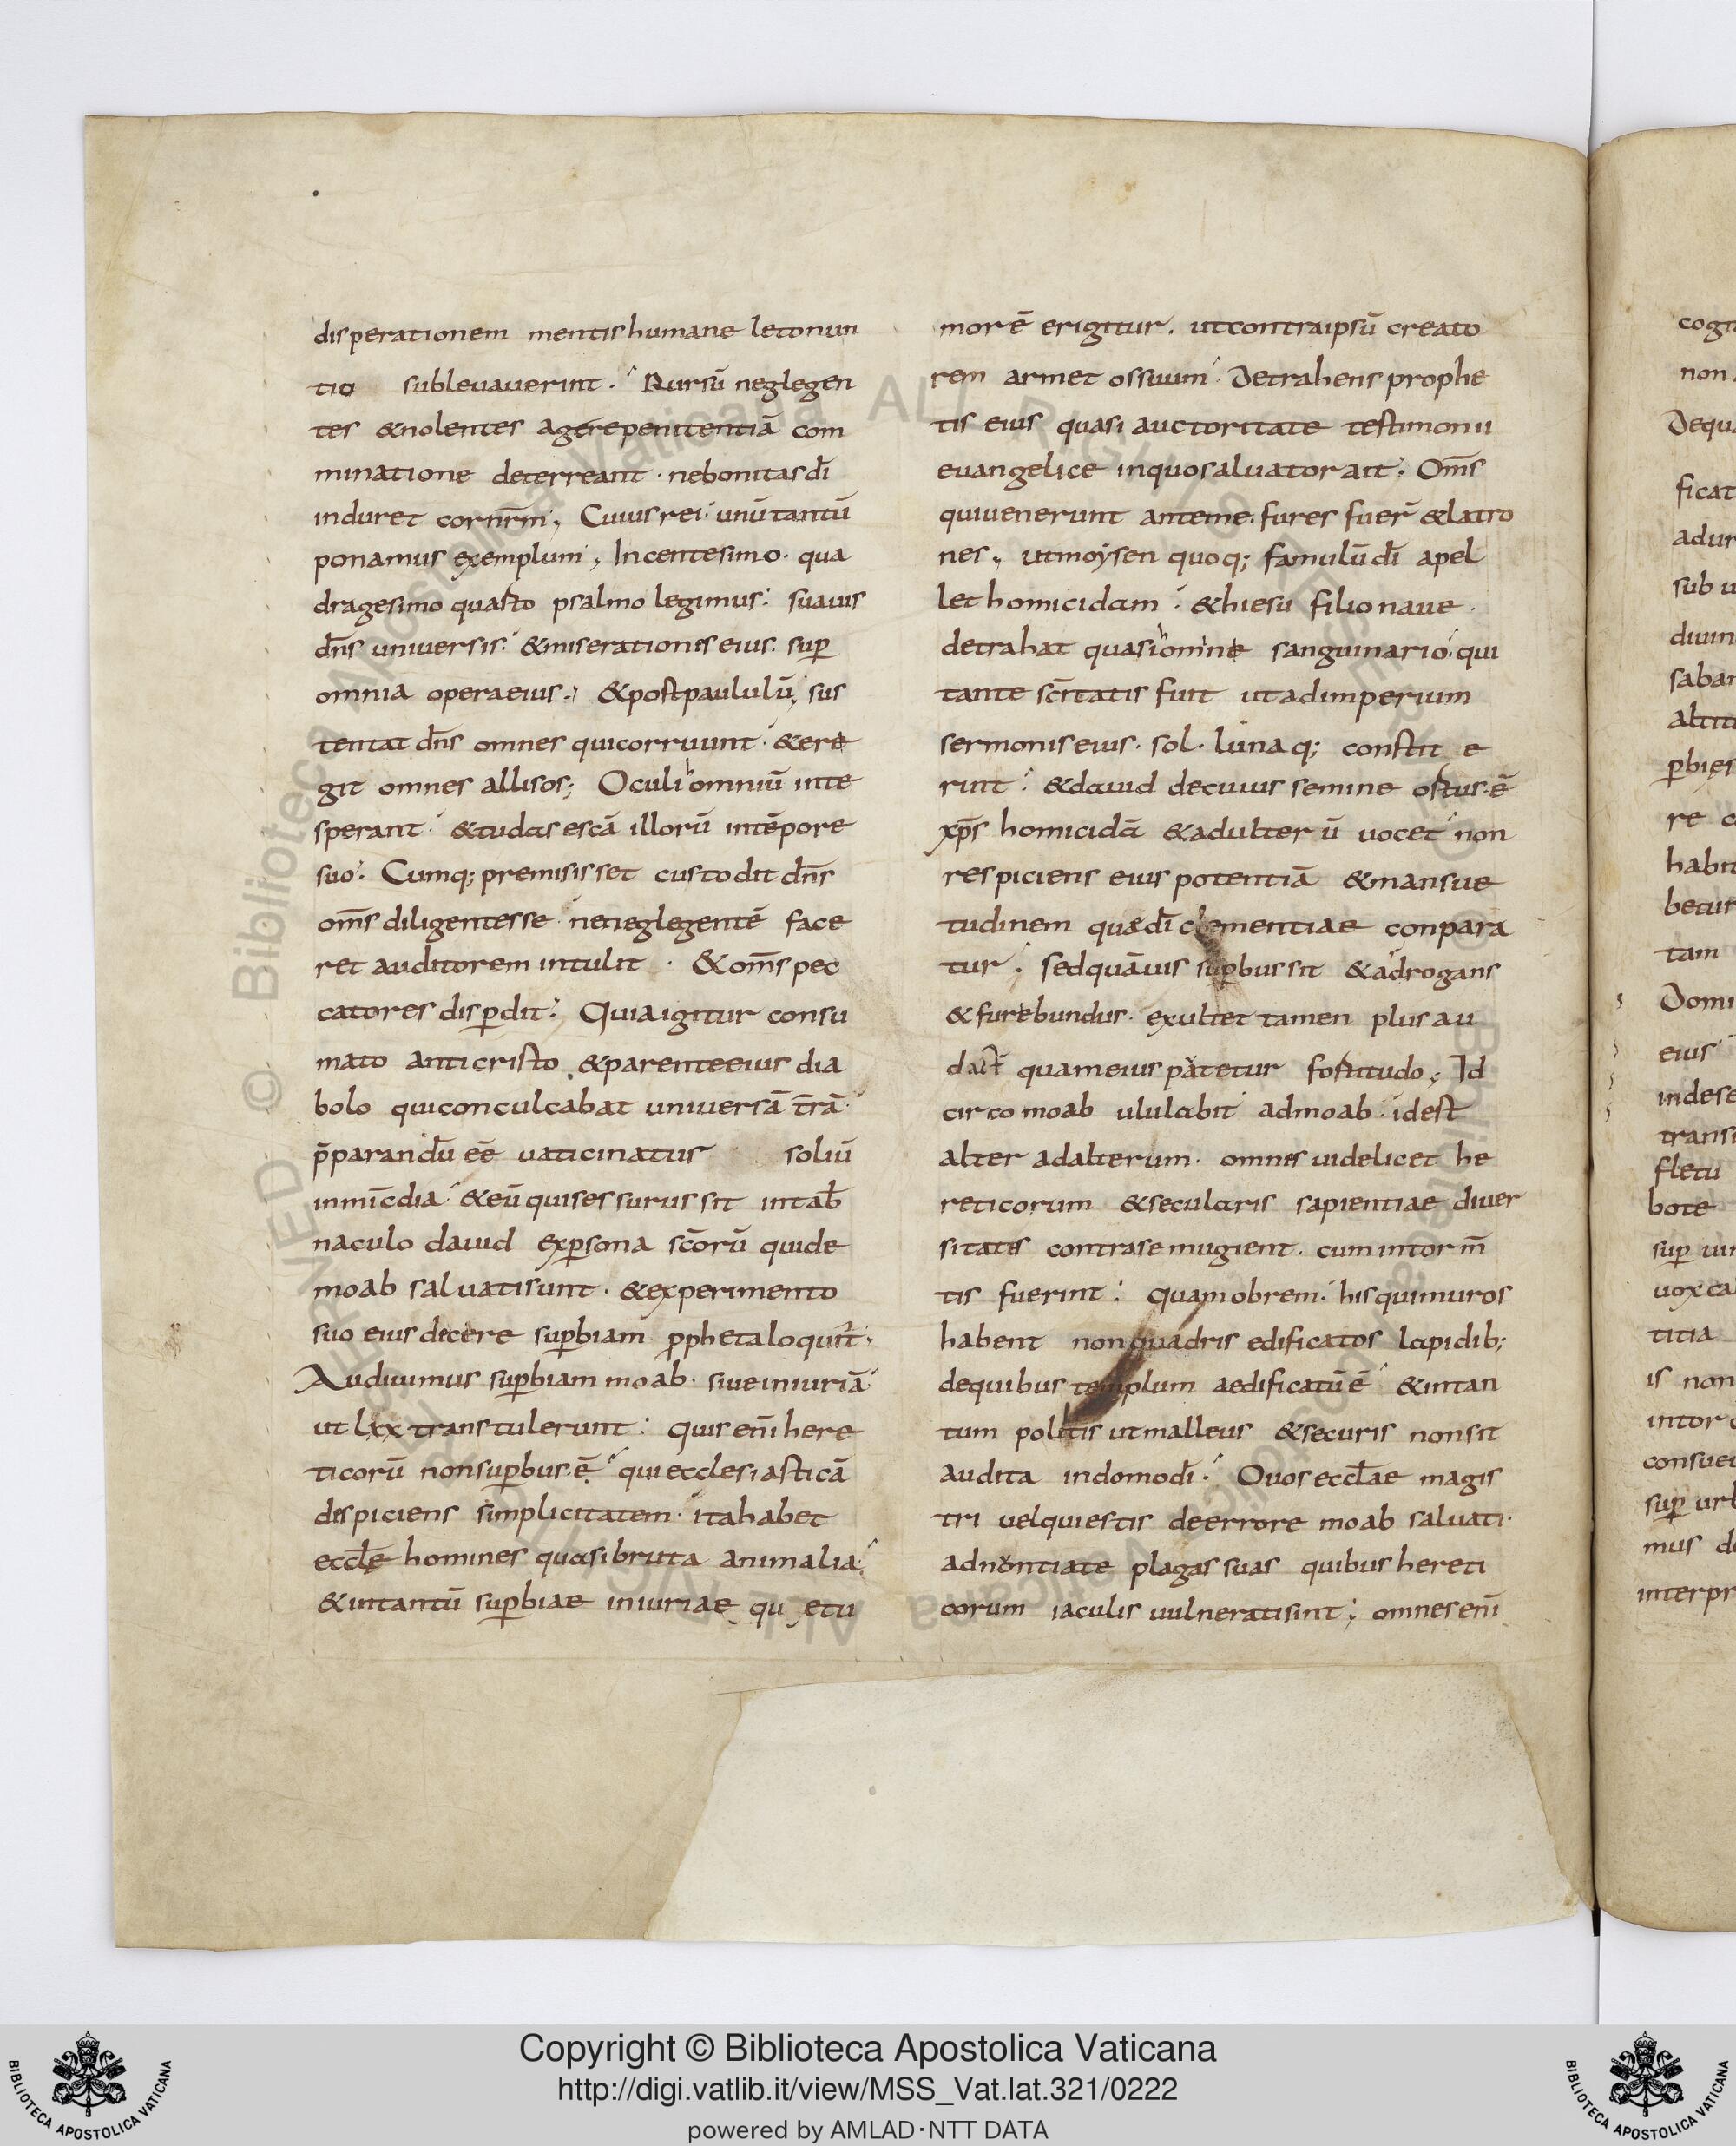 disperationem mentis humane leto nun
tio subleuauerint. Rursū neglegen
tes & nolentes agere penitentiā com
minatione deterreant. ne bonitas dī
induret cor nr̄m; Cuius rei unū tantū
ponamus exemplum; In centesimo qua
dragesimo quarto psalmo legimus: suauis
dn̄s uniuersis: & miserationes eius. sup
omnia opera eius; & post paululū, sus
tentat dn̄s omnes qui corruunt. & ere
git omnes allisos; Oculi omniū in te
sperant. & tu das escā illorū in tēpore
suo. Cumq; premisisset custodit dn̄s
om̄s diligentes se ne neglegentē face
ret auditorem intulit. & om̄s pec
catores disp̄dit: Quia igitur consu
mato anticristo & parente eius dia
bolo qui conculcabat uniuersā tr̄ā.
p̄parandū eē uaticinatus soliū
in mīcdia & eū qui sessurus sit in tab̄
naculo dauid ex p̄sona sc̄orū qui de
moab saluati sunt. & experimento
suo eius dicere sup̄biam p̄pheta loquit̄.
Audiuimus sup̄biam moab. siue iniuriā
ut lxx transtulerunt: quis enī here
ticorū non sup̄bus ē. qui ecclesiasticā
despiciens simplicitatem ita habet
eccl̄e homines quasi bruta animalia.
& in tantū sup̄biae iniuriae qu etu
mor ē erigitur. ut contra ipsū creato
rem armet os suum. Detrahens prophe
tis eius quasi auctoritate testimonii
euangelice in quo saluator ait. Om̄s
qui uenerunt ante me. fures fuer̄ & latro
nes; ut moysen quoq; famulū dī apel
let homicidam. & hiesu filio naue.
detrahat quasi homine sanguinario. qui
tante sc̄itatis fuit ut ad imperium
sermonis eius. sol. lunaq; constit e
rint. & dauid de cuius semine ortus ē
xp̄s homicidā & adulterū uocet non
respiciens eius potentiā & mansue
tudinem quae dī clementiae conpara
tur. sed quāuis sup̄bus sit & adrogans
& furebundus. exultet tamen plus au
dact̄ quam eius patetur fortitudo; Id
circo moab ululabit ad moab. id est
alter ad alterum. omnes uidelicet he
reticorum & secularis sapientiae diuer
sitates contra se mugient. cum in torm̄
tis fuerint: quam obrem. his qui muros
habent non quadris edificatos lapidib;
de quibus templum aedificatū ē & in tan
tum politis ut malleus & securis non sit
audita in domo dī. O uos eccl̄ae magis
tri uel qui estis de errore moab saluati.
adnontiate plagas suas quibus hereti
corum iaculis uulnerati sint; omnes enī
cogi
non
Dequ
ficat
adur
sub u
diuin
saba
altit
p̄bies
re c
habit
betur
tam
Domi
eius
indese
transi
fletu
bote
sup̄ uin
uox ca
titia
is non
intor
consue
sup̄ urb
mus de
interpr
© Biblioteca Apostolica Vaticana ALL RIGHTS RESERVED
Copyright © Biblioteca Apostolica Vaticana
http://digi.vatlib.it/view/MSS_Vat.lat.321/0222
powered by AMLAD·NTT DATA
BIBLIOTECA APOSTOLICA VATICANA
BIBLIOTECA APOSTOLICA VATICANA